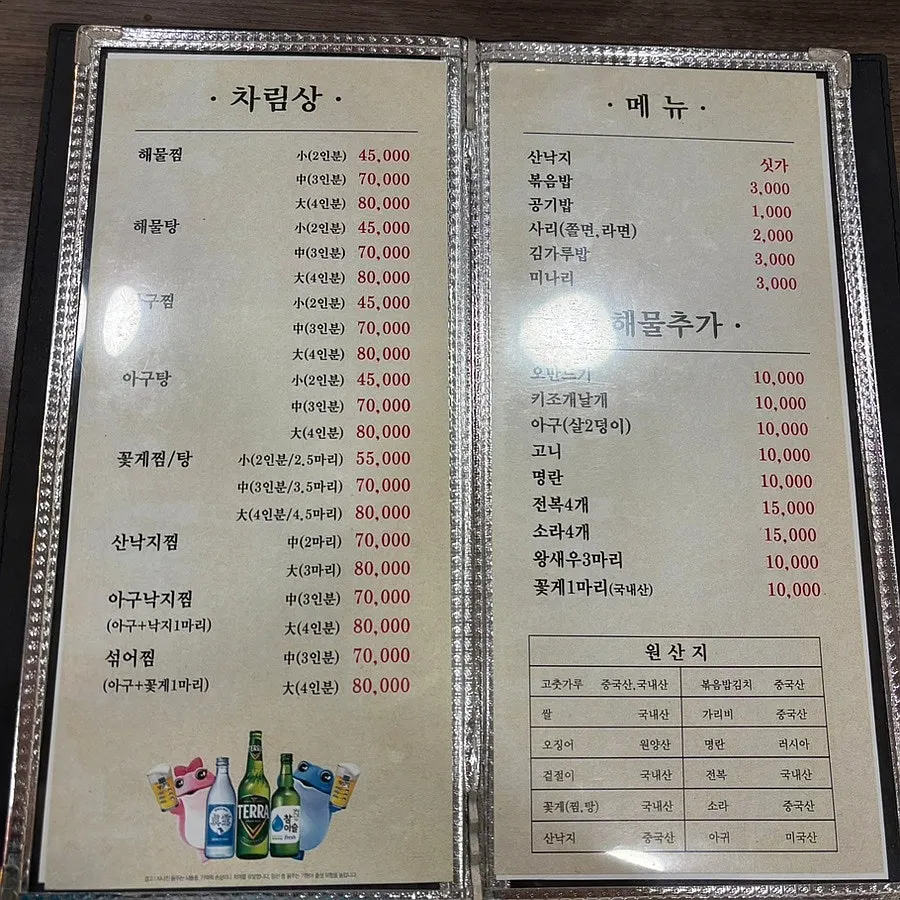 · 차림상 ·
해물찜 小(2인분) 45,000
中(3인분) 70,000
大(4인분) 80,000
해물탕 小(2인분) 45,000
中(3인분) 70,000
大(4인분) 80,000
구찜 小(2인분) 45,000
中(3인분) 70,000
大(4인분) 80,000
아구탕 小(2인분) 45,000
中(3인분) 70,000
大(4인분) 80,000
꽃게찜/탕 小(2인분/2.5마리) 55,000
中(3인분/3.5마리) 70,000
大(4인분/4.5마리) 80,000
산낙지찜 中(2마리) 70,000
大(3마리) 80,000
아구낙지찜 中(3인분) 70,000
(아구+낙지1마리) 大(4인분) 80,000
섞어찜 中(3인분) 70,000
(아구+꽃게1마리) 大(4인분) 80,000
TERRA
TERRA
참이슬
fresh
· 메뉴 ·
산낙지 싯가
볶음밥 3,000
공기밥 1,000
사리(쫄면,라면) 2,000
김가루밥 3,000
미나리 3,000
해물추가 ·
오만느기 10,000
키조개날개 10,000
아구(살2덩이) 10,000
고니 10,000
명란 10,000
전복4개 15,000
소라4개 15,000
왕새우3마리 10,000
꽃게1마리(국내산) 10,000
원산지
고춧가루 중국산,국내산 볶음밥김치 중국산
쌀 국내산 가리비 중국산
오징어 원양산 명란 러시아
겉절이 국내산 전복 국내산
꽃게(찜,탕) 국내산 소라 중국산
산낙지 중국산 아귀 미국산